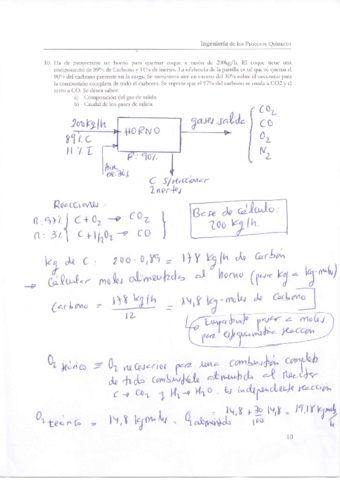 Ingeniería de los Procesos Químicos
10. Ha de proyectarse un horno para quemar coque a razón de 200kg/h. El coque tiene una
composición de 89% de Carbono y 11% de inertes. La eficiencia de la parrilla es tal que se quema el
90% del carbono presente en la carga. Se suministra aire en exceso del 30% sobre el necesario para
la combustión completa de todo el carbono. Se supone que el 97% del carbono se oxida a CO2 y el
resto a CO. Se desea saber:
a) Composición del gas de salida.
b) Caudal de los gases de salida.
200 kg/h
89% C
11% I
HORNO
R: 90%
gases salida
CO2
CO
O2
N2
Aire
ex. 30%
C s/reaccionar
Inertes
Reacciones:
n: 97% C + O2 → CO2
n: 3% C + 1/2 O2 → CO
Base de cálculo:
200 kg/h.
kg de C: 200 · 0,89 = 178 kg/h de carbón
→ Calcular moles alimentados al horno (pasar kg a kg-moles)
Carbono = 178 kg/h / 12 = 14,8 kg-moles de carbono
Importante pasar a moles
para estequiometría reacción
O2 teórico = O2 necesarios para una combustión completa
de todo combustible alimentado al Reactor
C → CO2 y H2 → H2O. Es independiente reacción
O2 teórico = 14,8 kgmoles. O2 alimentado 14,8 + 30/100 14,8 = 19,18 kgmoles/h
10